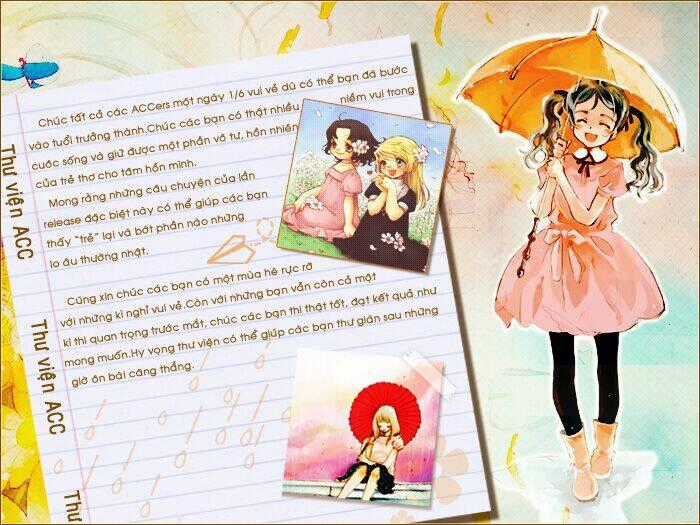 Chúc tất cả các ACCers một ngày 1/6 vui vẻ dù có thể bạn đã bước
vào tuổi trưởng thành.Chúc các bạn có thật nhiều niềm vui trong
cuốc sống và giữ được một phần vô tư, hồn nhiên
của trẻ thơ cho tâm hồn mình.
Mong rằng những câu chuyện của lần
release đặc biệt này có thể giúp các bạn
thấy "trẻ" lại và bớt phần nào những
lo âu thường nhật.
Cũng xin chúc các bạn có một mùa hè rực rỡ
với những kì nghỉ vui vẻ.Còn với những bạn vẫn còn cả một
kì thi quan trọng trước mắt, chúc các bạn thi thật tốt, đạt kết quả như
mong muốn.Hy vọng thư viện có thể giúp các bạn thư giãn sau những
giờ ôn bài căng thẳng.
Thư viện ACC
Thư viện ACC
Th